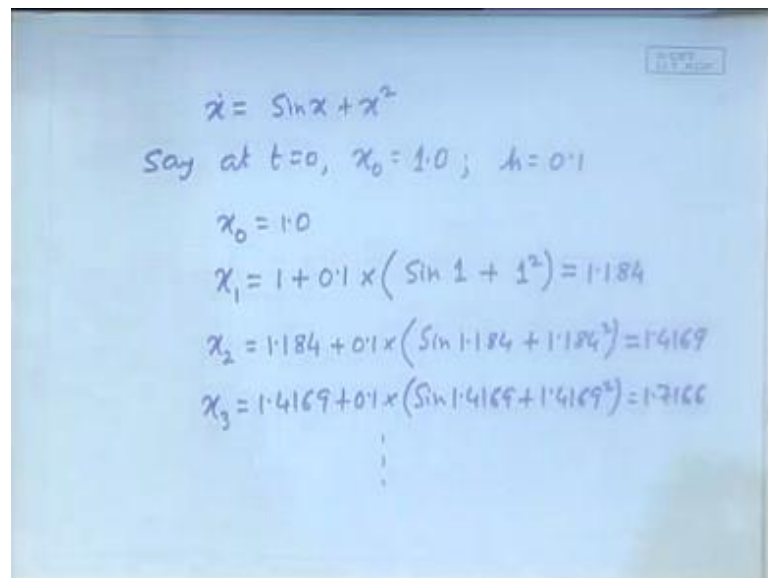 ẋ = Sin x + x²
Say at t=0, x₀ = 1.0 ; h = 0.1
x₀ = 1.0
x₁ = 1 + 0.1 x ( Sin 1 + 1² ) = 1.184
x₂ = 1.184 + 0.1 x ( Sin 1.184 + 1.184² ) = 1.4169
x₃ = 1.4169 + 0.1 x ( Sin 1.4169 + 1.4169² ) = 1.7166